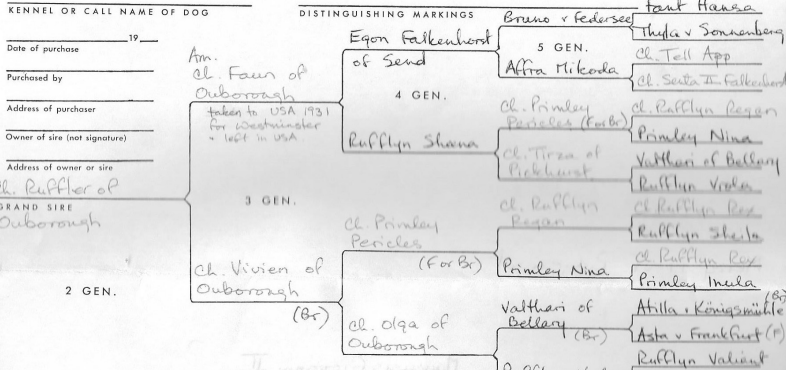 KENNEL OR CALL NAME OF DOG
DISTINGUISHING MARKINGS
19
Date of purchase
Purchased by
Address of purchaser
Owner of sire (not signature)
Address of owner or sire
Ch. Ruffler of
GRAND SIRE
Ouborough
2 GEN.
Am.
Ch. Faun of
Ouborough
taken to USA 1931
for Westminster
left in USA
3 GEN.
Ch. Vivien of
Ouborough
(Br)
Egon Falkenhorst
of Send
4 GEN.
Rufflyn Shaana
Ch. Primley
Pericles
(For Br)
Ch. Olga of
Ouborough
Bruno v Federsee
5 GEN.
Affra Mikoda
Ch. Primley
Pericles (For Br)
Ch. Tirza of
Pickhurst
Ch. Rufflyn
Regan
Primley Nina
Valthari of
Bellary
(Br)
Hansa
Thyla v Sonnenberg
Ch. Tell App
Ch. Senta II Falkenhorst
Ch. Rufflyn Regan
Primley Nina
Valthari of Bellary
Rufflyn Vrola
Ch Rufflyn Rex
Rufflyn Sheila
Ch Rufflyn Rex
Primley Inula
(Br)
Atilla v Königsmühle
Asta v Frankfurt (F)
Rufflyn Valiant